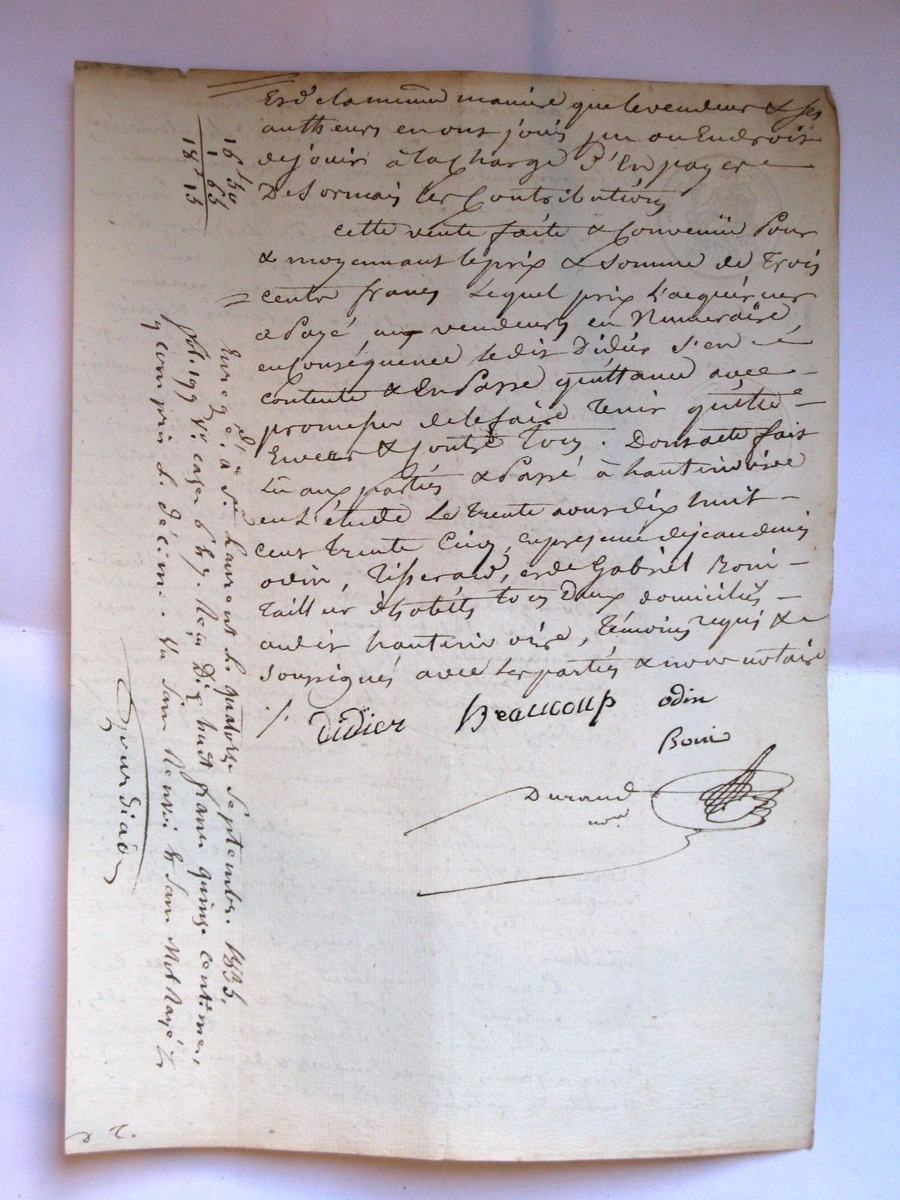 Et de la même manière que le vendeur & ses
autheurs en ont joui peu ou En droit
de jouir à la charge d'En payer
Desormais les Contributions
cette vente faite & Convenüe Pour
& moyennant le prix & somme de Trois
cents francs lequel prix l'acquéreur
a Payé aux vendeurs en Numeraire
en Conséquence ledit Didier s'en
contente & En Passe quittance avec
promesse de le faire tenir quitte
Envers & Contre Tous. Dont acte fait
Lu aux parties & Passé à hauterivoire
en L'étude Le Trente aout dix huit
cent trente Cinq, en présence de
odin, Tisserand, et de Gabriel Boui
Tailleur d'habits tous Deux domiciliés
audit hauterivoire, Témoins requis &
soussignés avec les parties & nous notaire
Didier Beaucoup odin
Boui
Durand
nore
16 50
1 65
18 f 15
Enregé. à St. Laurent le quatorze Septembre 1835,
fol. 197 Vo. cases 6 & 7. Reçu Dix huit francs quinze centimes,
y compris le décime. Un Sans Renvoi & Sans Mot Rayé